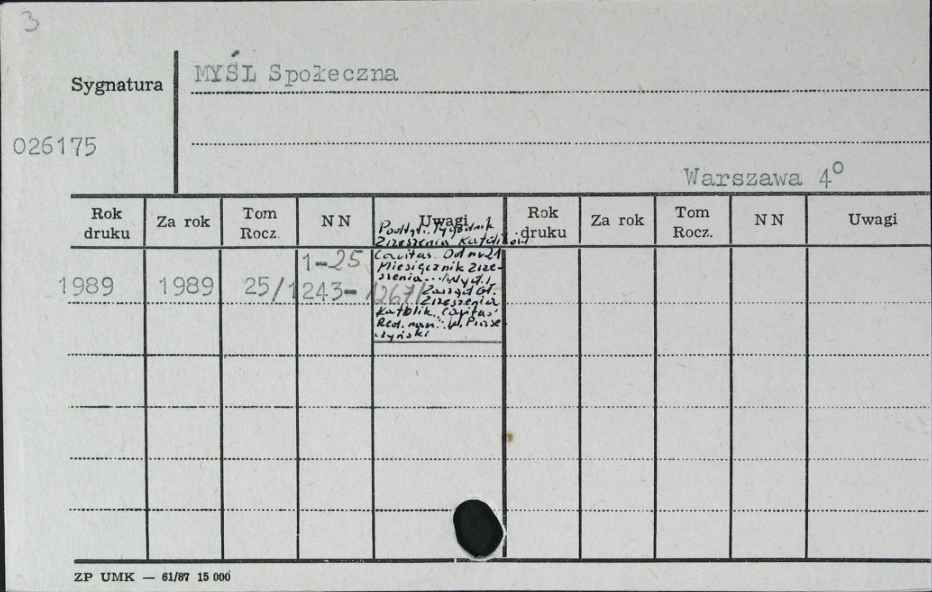 3
MYŚL Społeczna
Sygnatura
026175
Warszawa 4⁰
Rok druku Za rok Tom Rocz. NN Uwagi Rok druku Za rok Tom Rocz. NN Uwagi
Podtyt.: Tygodnik
Zrzeszenia Katolików
Caritas. Od nr 21
Miesięcznik Zrze-
szenia...
1-25
1989 1989 25/1243-1267/
Zarząd Gł.
Zrzeszenia
Katolik. Caritas
Red.
ZP UMK — 61/87 15 000